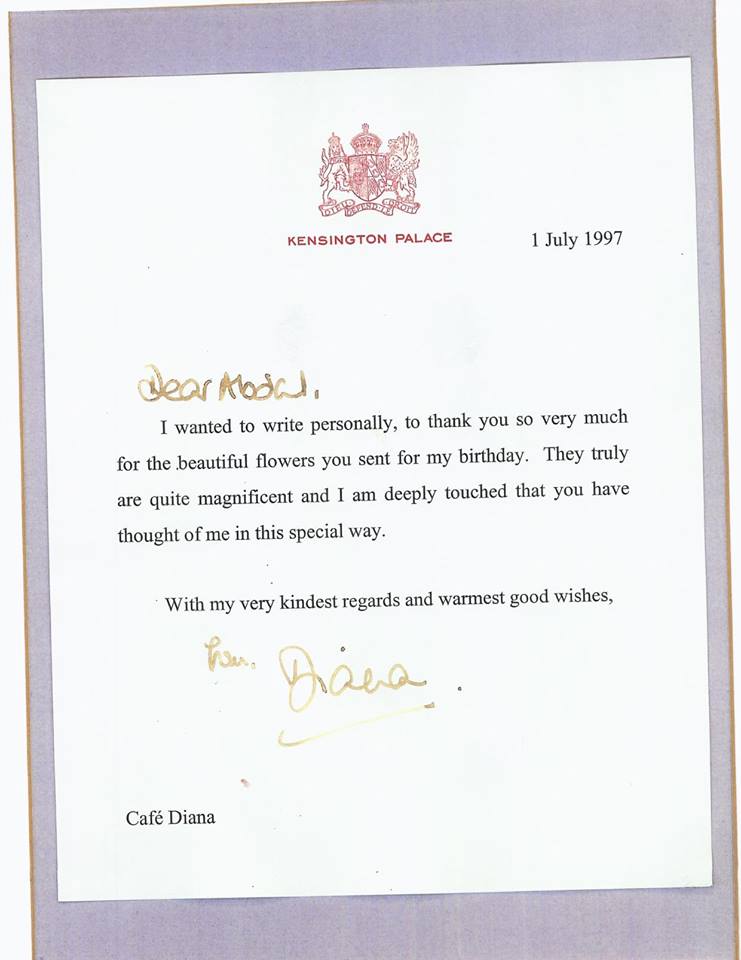 DIEU ET MON DROIT
KENSINGTON PALACE
1 July 1997
Dear Abdul.
I wanted to write personally, to thank you so very much
for the beautiful flowers you sent for my birthday. They truly
are quite magnificent and I am deeply touched that you have
thought of me in this special way.
With my very kindest regards and warmest good wishes,
from.
Diana.
Café Diana